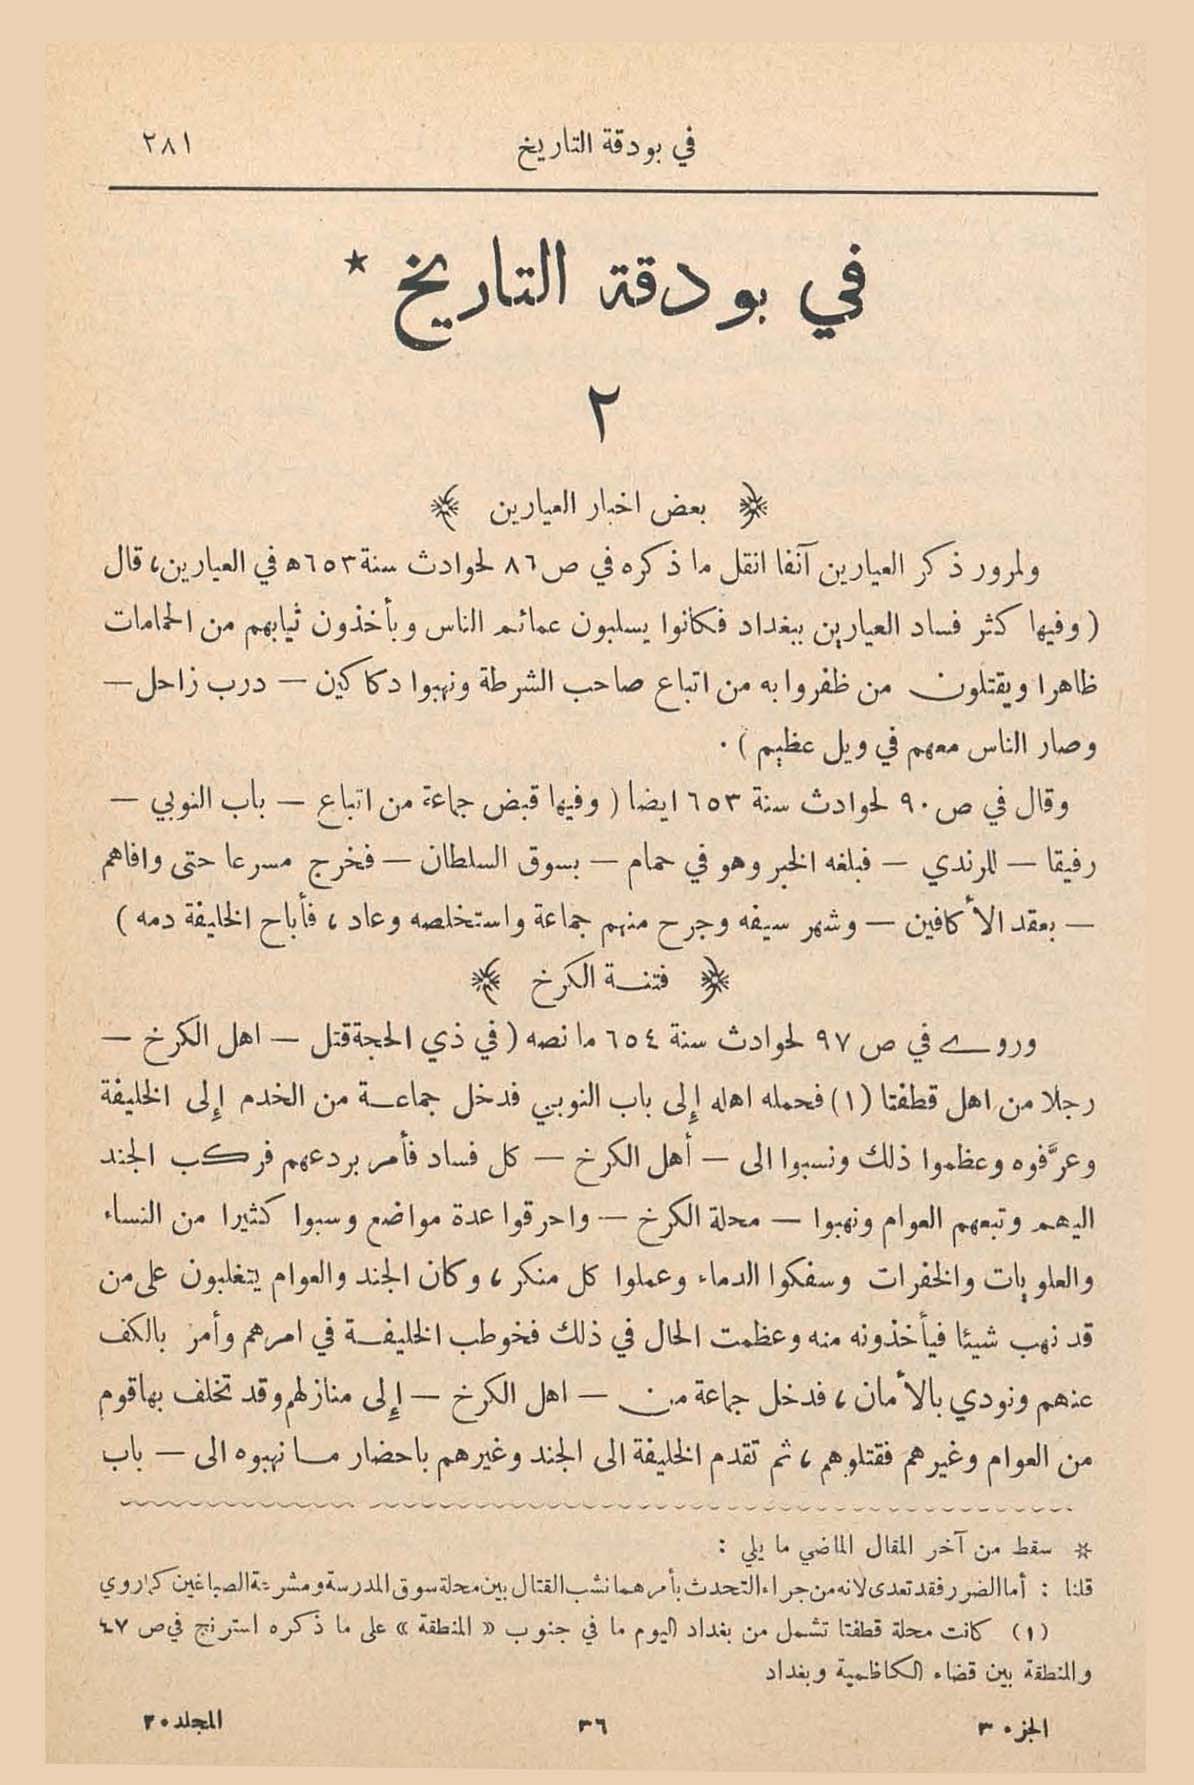 في بودقة التاريخ ٢٨١
في بودقة التاريخ *
٢
بعض اخبار العيارين
ولمرور ذكر العيارين آنفا انقل ما ذكره في ص ٨٦ لحوادث سنة ٦٥٣ه في العيارين، قال
( وفيها كثر فساد العيارين ببغداد فكانوا يسلبون عمائم الناس ويأخذون ثيابهم من الحمامات
ظاهرا ويقتلون من ظفروا به من اتباع صاحب الشرطة ونهبوا دكاكين — درب زاحل —
وصار الناس معهم في ويل عظيم ) .
وقال في ص ٩٠ لحوادث سنة ٦٥٣ ايضا ( وفيها قبض جماعة من اتباع — باب النوبي —
رفيقا — للرندي — فبلغه الخبر وهو في حمام — بسوق السلطان — فخرج مسرعا حتى وافاهم
— بعقد الأكافين — وشهر سيفه وجرح منهم جماعة واستخلصه وعاد ، فأباح الخليفة دمه )
فتنة الكرخ
وروى في ص ٩٧ لحوادث سنة ٦٥٤ ما نصه ( في ذي الحجة قتل — اهل الكرخ —
رجلا من اهل قطفتا (١) فحمله اهله إلى باب النوبي فدخل جماعة من الخدم إلى الخليفة
وعرَّفوه وعظموا ذلك ونسبوا الى — أهل الكرخ — كل فساد فأمر بردعهم فركب الجند
اليهم وتبعهم العوام ونهبوا — محلة الكرخ — واحرقوا عدة مواضع وسبوا كثيرا من النساء
والعلويات والخفرات وسفكوا الدماء وعملوا كل منكر ، وكان الجند والعوام يتغلبون على من
قد نهب شيئا فيأخذونه منه وعظمت الحال في ذلك فخوطب الخليفة في امرهم وأمر بالكف
عنهم ونودي بالأمان ، فدخل جماعة من — اهل الكرخ — إلى منازلهم وقد تخلف بها قوم
من العوام وغيرهم فقتلوهم ، ثم تقدم الخليفة الى الجند وغيرهم باحضار ما نهبوه الى — باب
* سقط من آخر المقال الماضي ما يلي :
قلنا : أما الضرر فقد تعدى لانه من جراء التحدث بأمرهما نشب القتال بين محلة سوق المدرسة ومشرعة الصباغين كما روي
(١) كانت محلة قطفتا تشمل من بغداد اليوم ما في جنوب « المنطقة » على ما ذكره استرنج في ص ٤٧
والمنطقة بين قضاء الكاظمية وبغداد
الجزء ٣ ٣٦ المجلد ٢٠